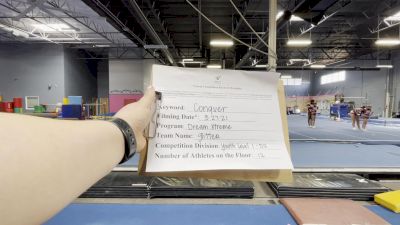 Keyword: Conquer
Filming Date: 3-27-21
Program: Dream Xtreme
Team Name: glitter
Competition Division: Youth Level 1 -
Number of Athletes on the Floor: 12